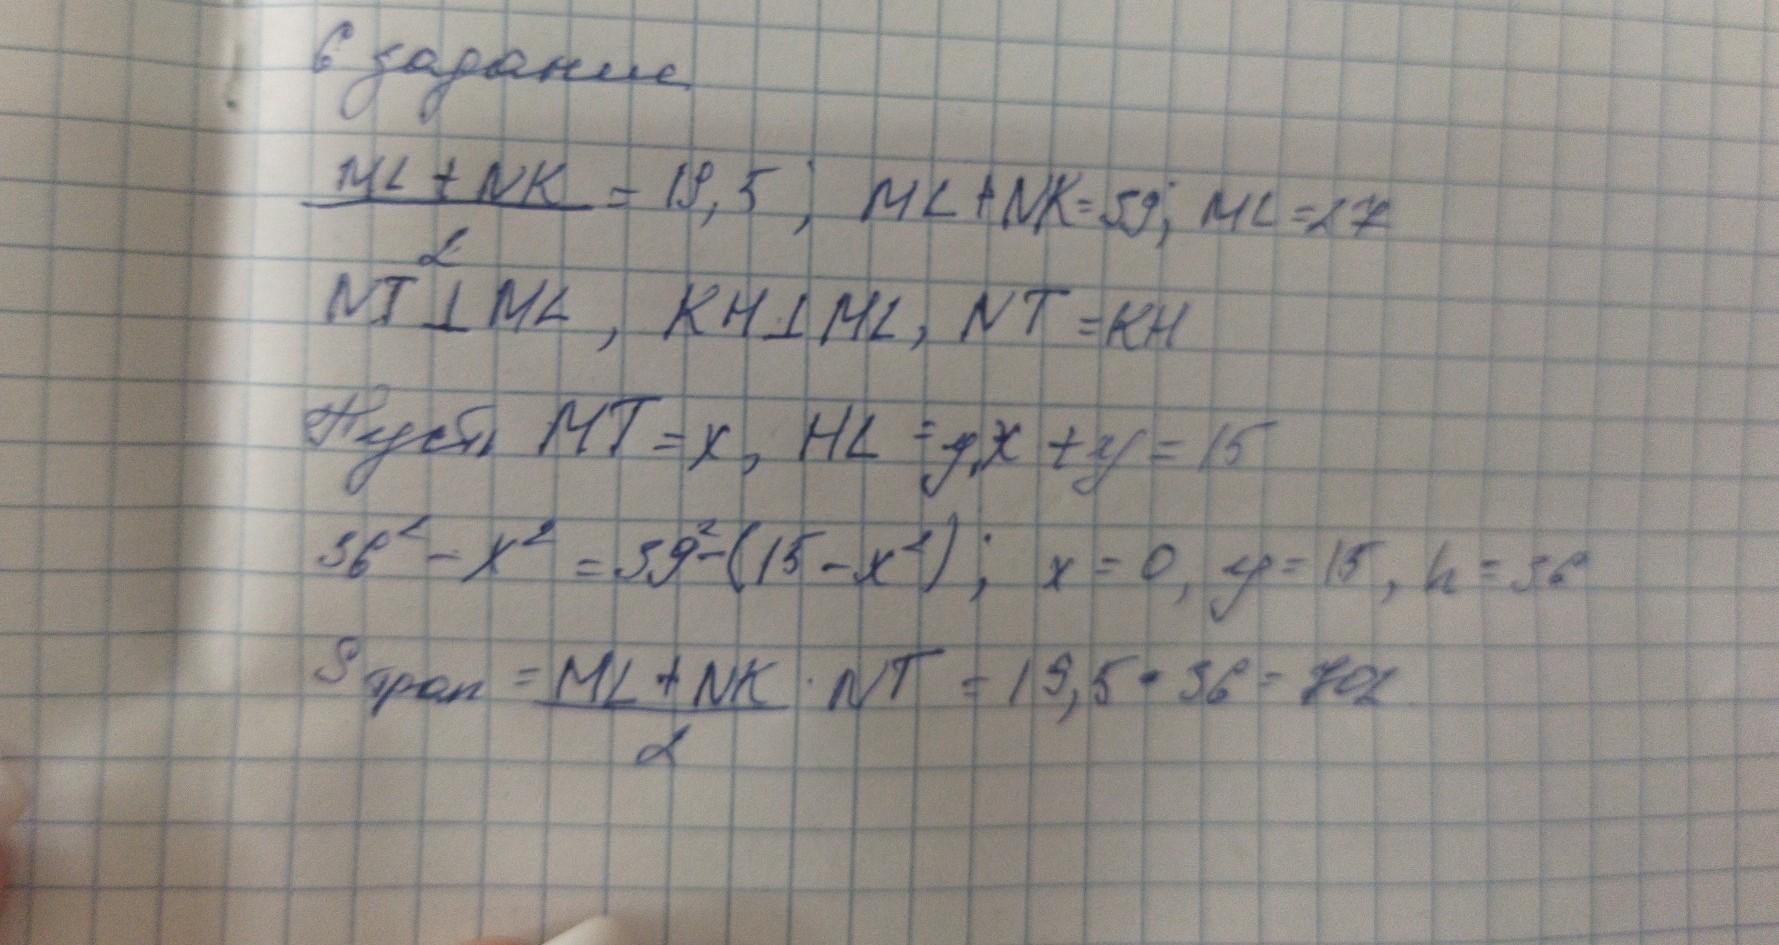 6 задание
ML + NK / 2 = 19,5 ; ML + NK = 39; ML = 27
NT ⊥ ML , KH ⊥ ML, NT = KH
Пусть MT = x, HL = y, x + y = 15
36² - x² = 39² - (15 - x²) ; x = 0, y = 15, h = 36
S трап = ML + NK / 2 · NT = 19,5 · 36 = 702